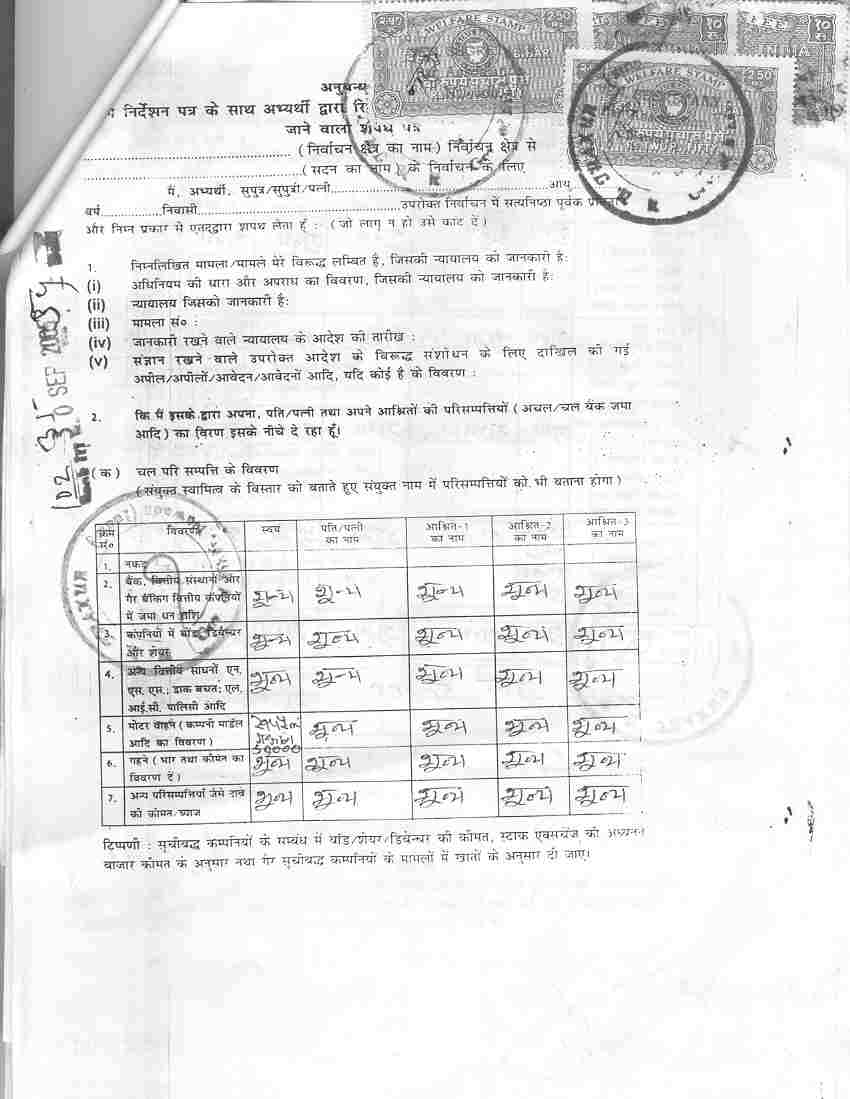 2.50 WELFARE STAMP 2.50
WELFARE STAMP 2.50
INDIA
अनुबन्ध
निर्देशन पत्र के साथ अभ्यर्थी द्वारा
जाने वाला शपथ पत्र
.................... (निर्वाचन क्षेत्र का नाम) निर्वाचन क्षेत्र से
.................... (सदन का नाम) के निर्वाचन के लिए
मैं, अभ्यर्थी, सुपुत्र/सुपुत्री/पत्नी....................आयु
वर्ष....................निवासी....................उपरोक्त निर्वाचन में सत्यनिष्ठा पूर्वक
और निम्न प्रकार से एतद्द्वारा शपथ लेता हूँ :- (जो लागू न हो उसे काट दें)
1. निम्नलिखित मामला/मामले मेरे विरूद्ध लम्बित है, जिसकी न्यायालय को जानकारी है:
(i) अधिनियम की धारा और अपराध का विवरण, जिसकी न्यायालय को जानकारी है:
(ii) न्यायालय जिसको जानकारी है:
(iii) मामला सं० :
(iv) जानकारी रखने वाले न्यायालय के आदेश की तारीख :
(v) संज्ञान रखने वाले उपरोक्त आदेश के विरूद्ध संशोधन के लिए दाखिल की गई
अपील/अपीलों/आवेदन/आवेदनों आदि, यदि कोई है के विवरण :
SEP
2. कि मैं इसके द्वारा अपना, पति/पत्नी तथा अपने आश्रितों की परिसम्पत्तियों (अचल/चल बैंक जमा
आदि) का विरण इसके नीचे दे रहा हूँ।
(क) चल परि सम्पत्ति के विवरण
(संयुक्त स्वामित्व के विस्तार को बताते हुए संयुक्त नाम में परिसम्पत्तियों को भी बताना होगा)
क्रम सं० विवरण स्वयं पति/पत्नी का नाम आश्रित-1 का नाम आश्रित-2 का नाम आश्रित-3 का नाम
1. नकद
2. बैंक, वित्तीय संस्थानों और गैर बैंकिंग वित्तीय कंपनियों में जमा धन राशि शून्य शून्य शून्य शून्य शून्य
3. कंपनियों में बांड, डिबेन्चर और शेयर शून्य शून्य शून्य शून्य शून्य
4. अन्य वित्तीय साधनों एन. एस. एस.; डाक बचत; एल. आई.सी. पालिसी आदि शून्य शून्य शून्य शून्य शून्य
5. मोटर वाहन (कम्पनी माडल आदि का विवरण) 50000 शून्य शून्य शून्य शून्य
6. गहने (भार तथा कीमत का विवरण दें) शून्य शून्य शून्य शून्य शून्य
7. अन्य परिसम्पत्तियां जैसे दावे की कीमत/ब्याज शून्य शून्य शून्य शून्य शून्य
टिप्पणी : सूचीबद्ध कम्पनियों के सम्बंध में बांड/शेयर/डिबेन्चर की कीमत, स्टाक एक्सचेंज की अध्यतन
बाजार कीमत के अनुसार तथा गैर सूचीबद्ध कम्पनियों के मामलों में खातों के अनुसार दी जाए।